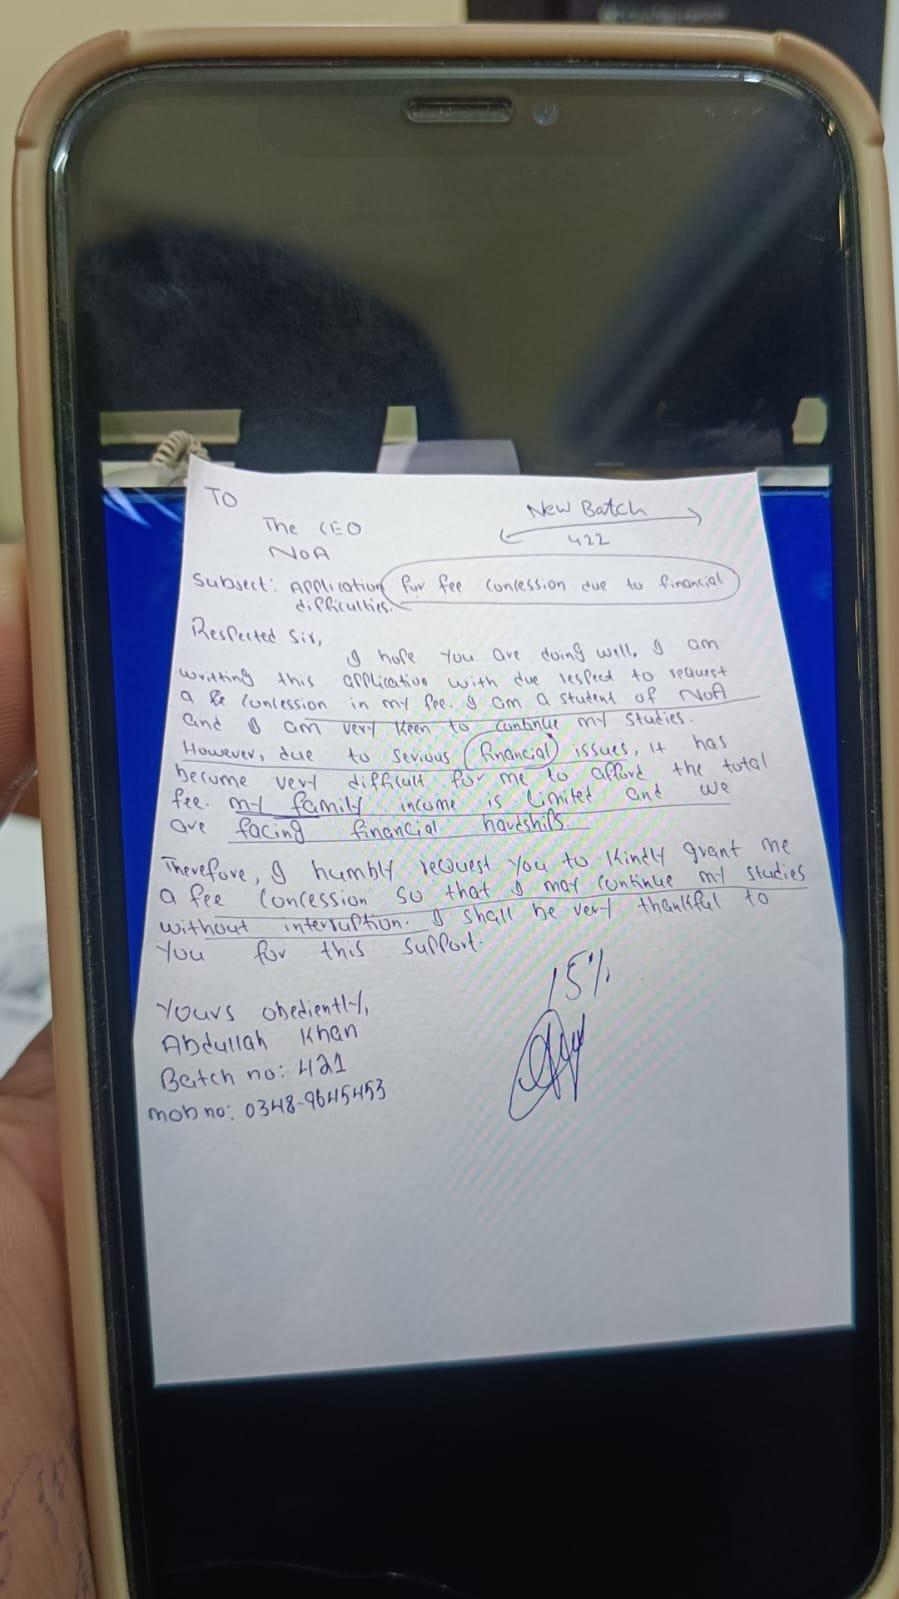 TO
The CEO
NOA
New Batch
422
Subject: Application for fee concession due to financial
difficulties.
Respected Sir,
I hope you are doing well, I am
writting this application with due respect to request
a fee concession in my fee. I am a student of NOA
and I am very keen to continue my studies.
However, due to serious financial issues, it has
become very difficult for me to afford the total
fee. my family income is limited and we
are facing financial hardships
Therefore, I humbly request you to kindly grant me
a fee concession so that I may continue my studies
without interruption. I shall be very thankful to
you for this support.
15%
Yours obediently,
Abdullah Khan
Batch no: 421
mob no: 0348-9645453